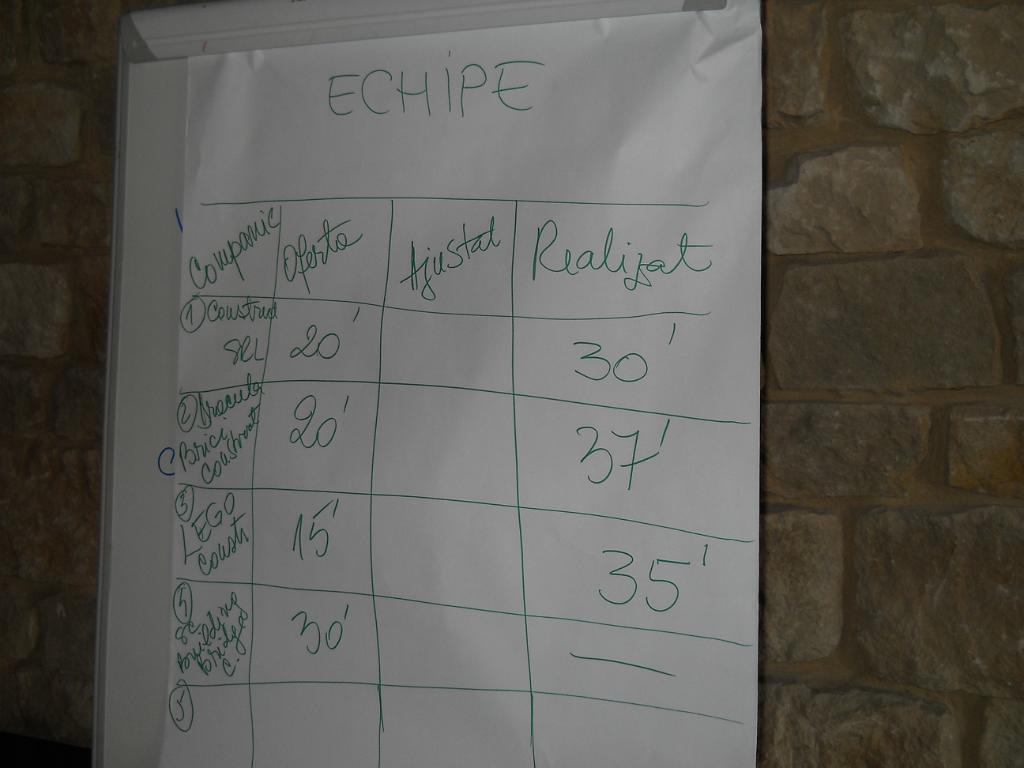 ECHIPE
Companie Oferta Ajustat Realizat
① Construct
SRL 20' 30'
② Dracula
Brick
Construct 20' 37'
③
LEGO
Constr 15' 35'
SC
Building
Bridge
C. 30' —